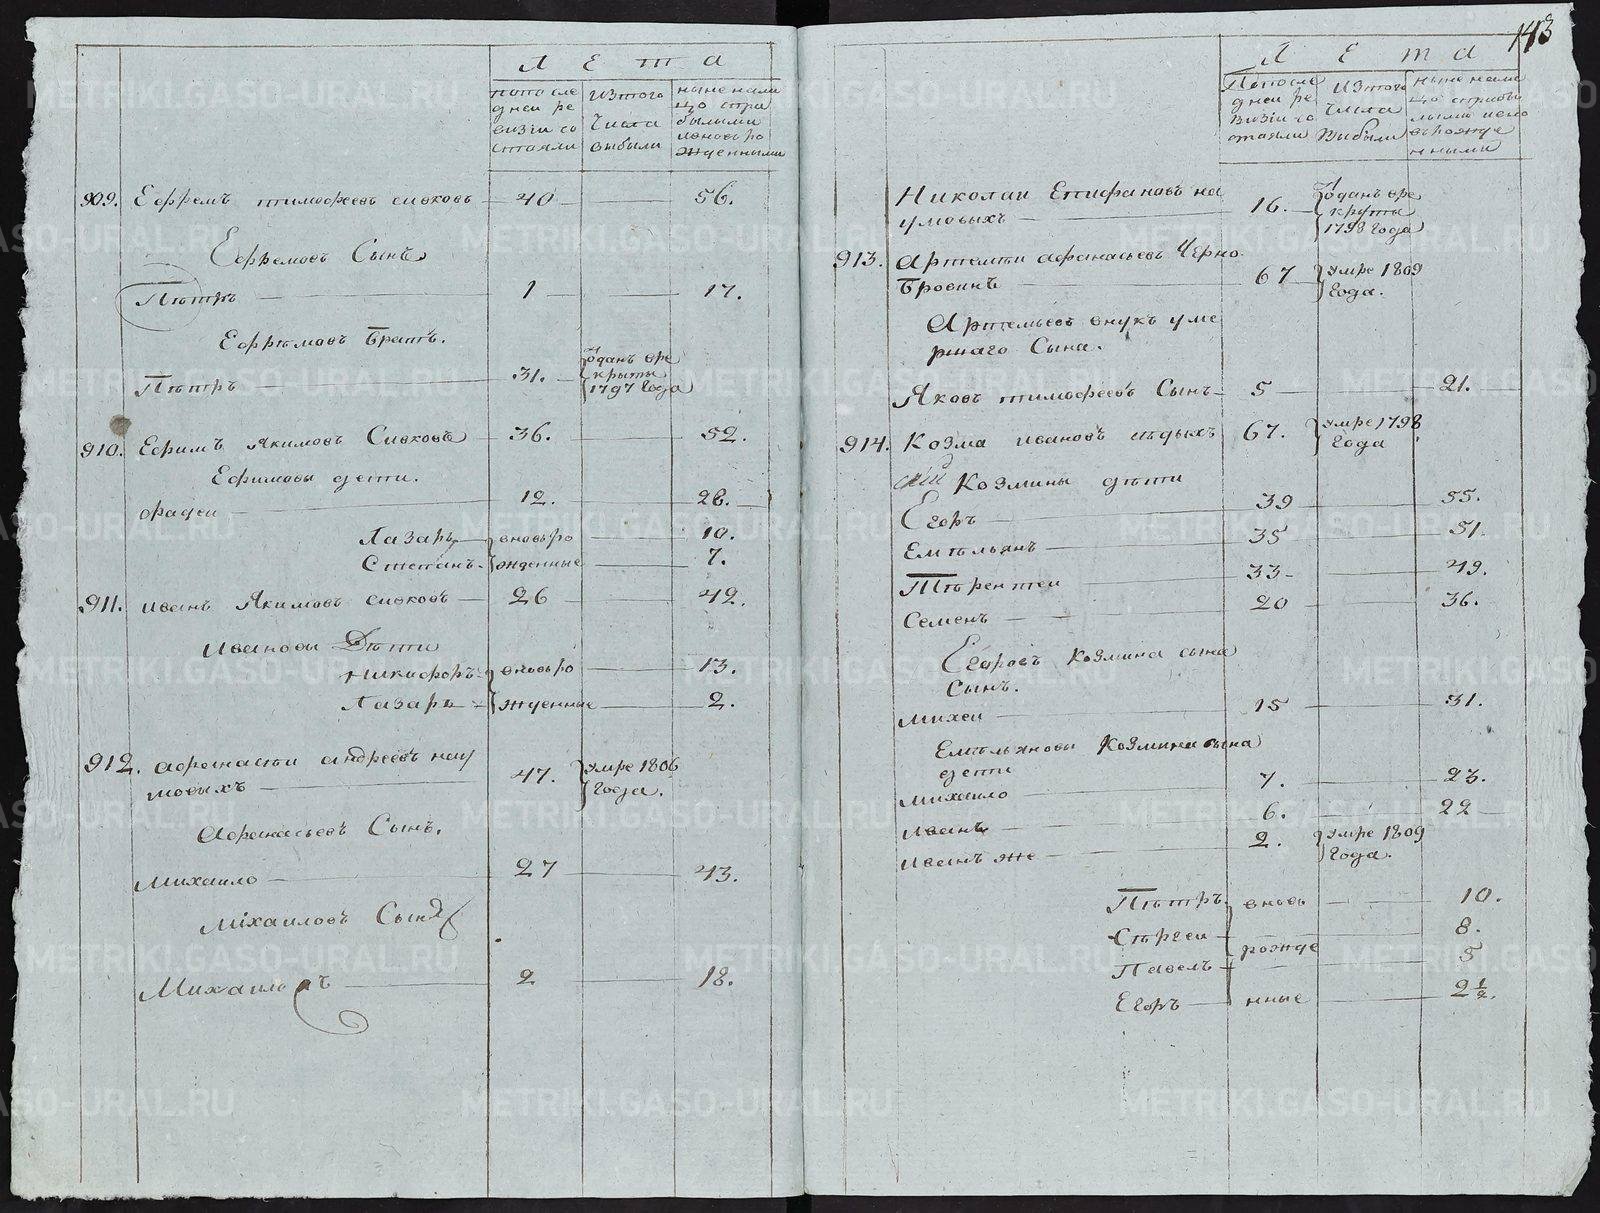 Лета
попосле
дней ре
визiи со
стояли
изтого
числа
выбыли
ныне нали
цо спри
былыми
ивновь ро
жденными
909. Ефремъ тимофеевъ сивковъ 40 56.
Ефремовъ Сынъ
Пѣтръ 1 17.
Ефрѣмовъ братъ.
Пѣтръ 31. Отданъ вре
круты
1797 года
910. Ефимъ Якимовъ Сивковъ 36. 52.
Ефимовы дети.
фадеи 12. 28.
Лазарь вновь ро 10.
Стѣпанъ жденные 7.
911. иванъ Якимовъ сивковъ 26 42.
Ивановы Дѣти
никифоръ вновь ро 13.
Лазарь жденные 2.
912. афанасеи андреевъ нау
мовыхъ 47. умре 1806
года.
Афанасьевъ Сынъ.
Михаило 27 43.
Мiхаиловъ Сынъ
Михаилъ 2 18.
143
Лета
Попосле
дней ре
визiи со
стояли
изтого
числа
выбыли
ныне нали
цо сприбы
лыми ивно
вь рожде
нными
Николаи Епифановъ на
умовыхъ 16. Отданъ вре
круты
1798 года
913. Артемеи афанасьевъ Черно
бровинъ 67 умре 1809
года.
Артемьевъ внукъ уме
ршаго Сына.
Яковъ тимофеевъ Сынъ 5 21.
914. Козма ивановъ сѣдыхъ 67. умре 1798
года
Козмины дѣти
Егоръ 39 55.
Емѣльянъ 35 51
Тѣрентеи 33 49.
Семенъ 20 36.
Егоровъ Козмина сына
Сынъ.
михеи 15 31.
Емѣльяновы Козмина сына
дети
михаило 7. 23.
иванъ 6. 22
иванъ же 2. умре 1809
года.
Пѣтръ вновь 10.
Сѣргеи 8.
рожде
Павелъ 5
Егоръ нные 2½.
METRIKI.GASO-URAL.RU